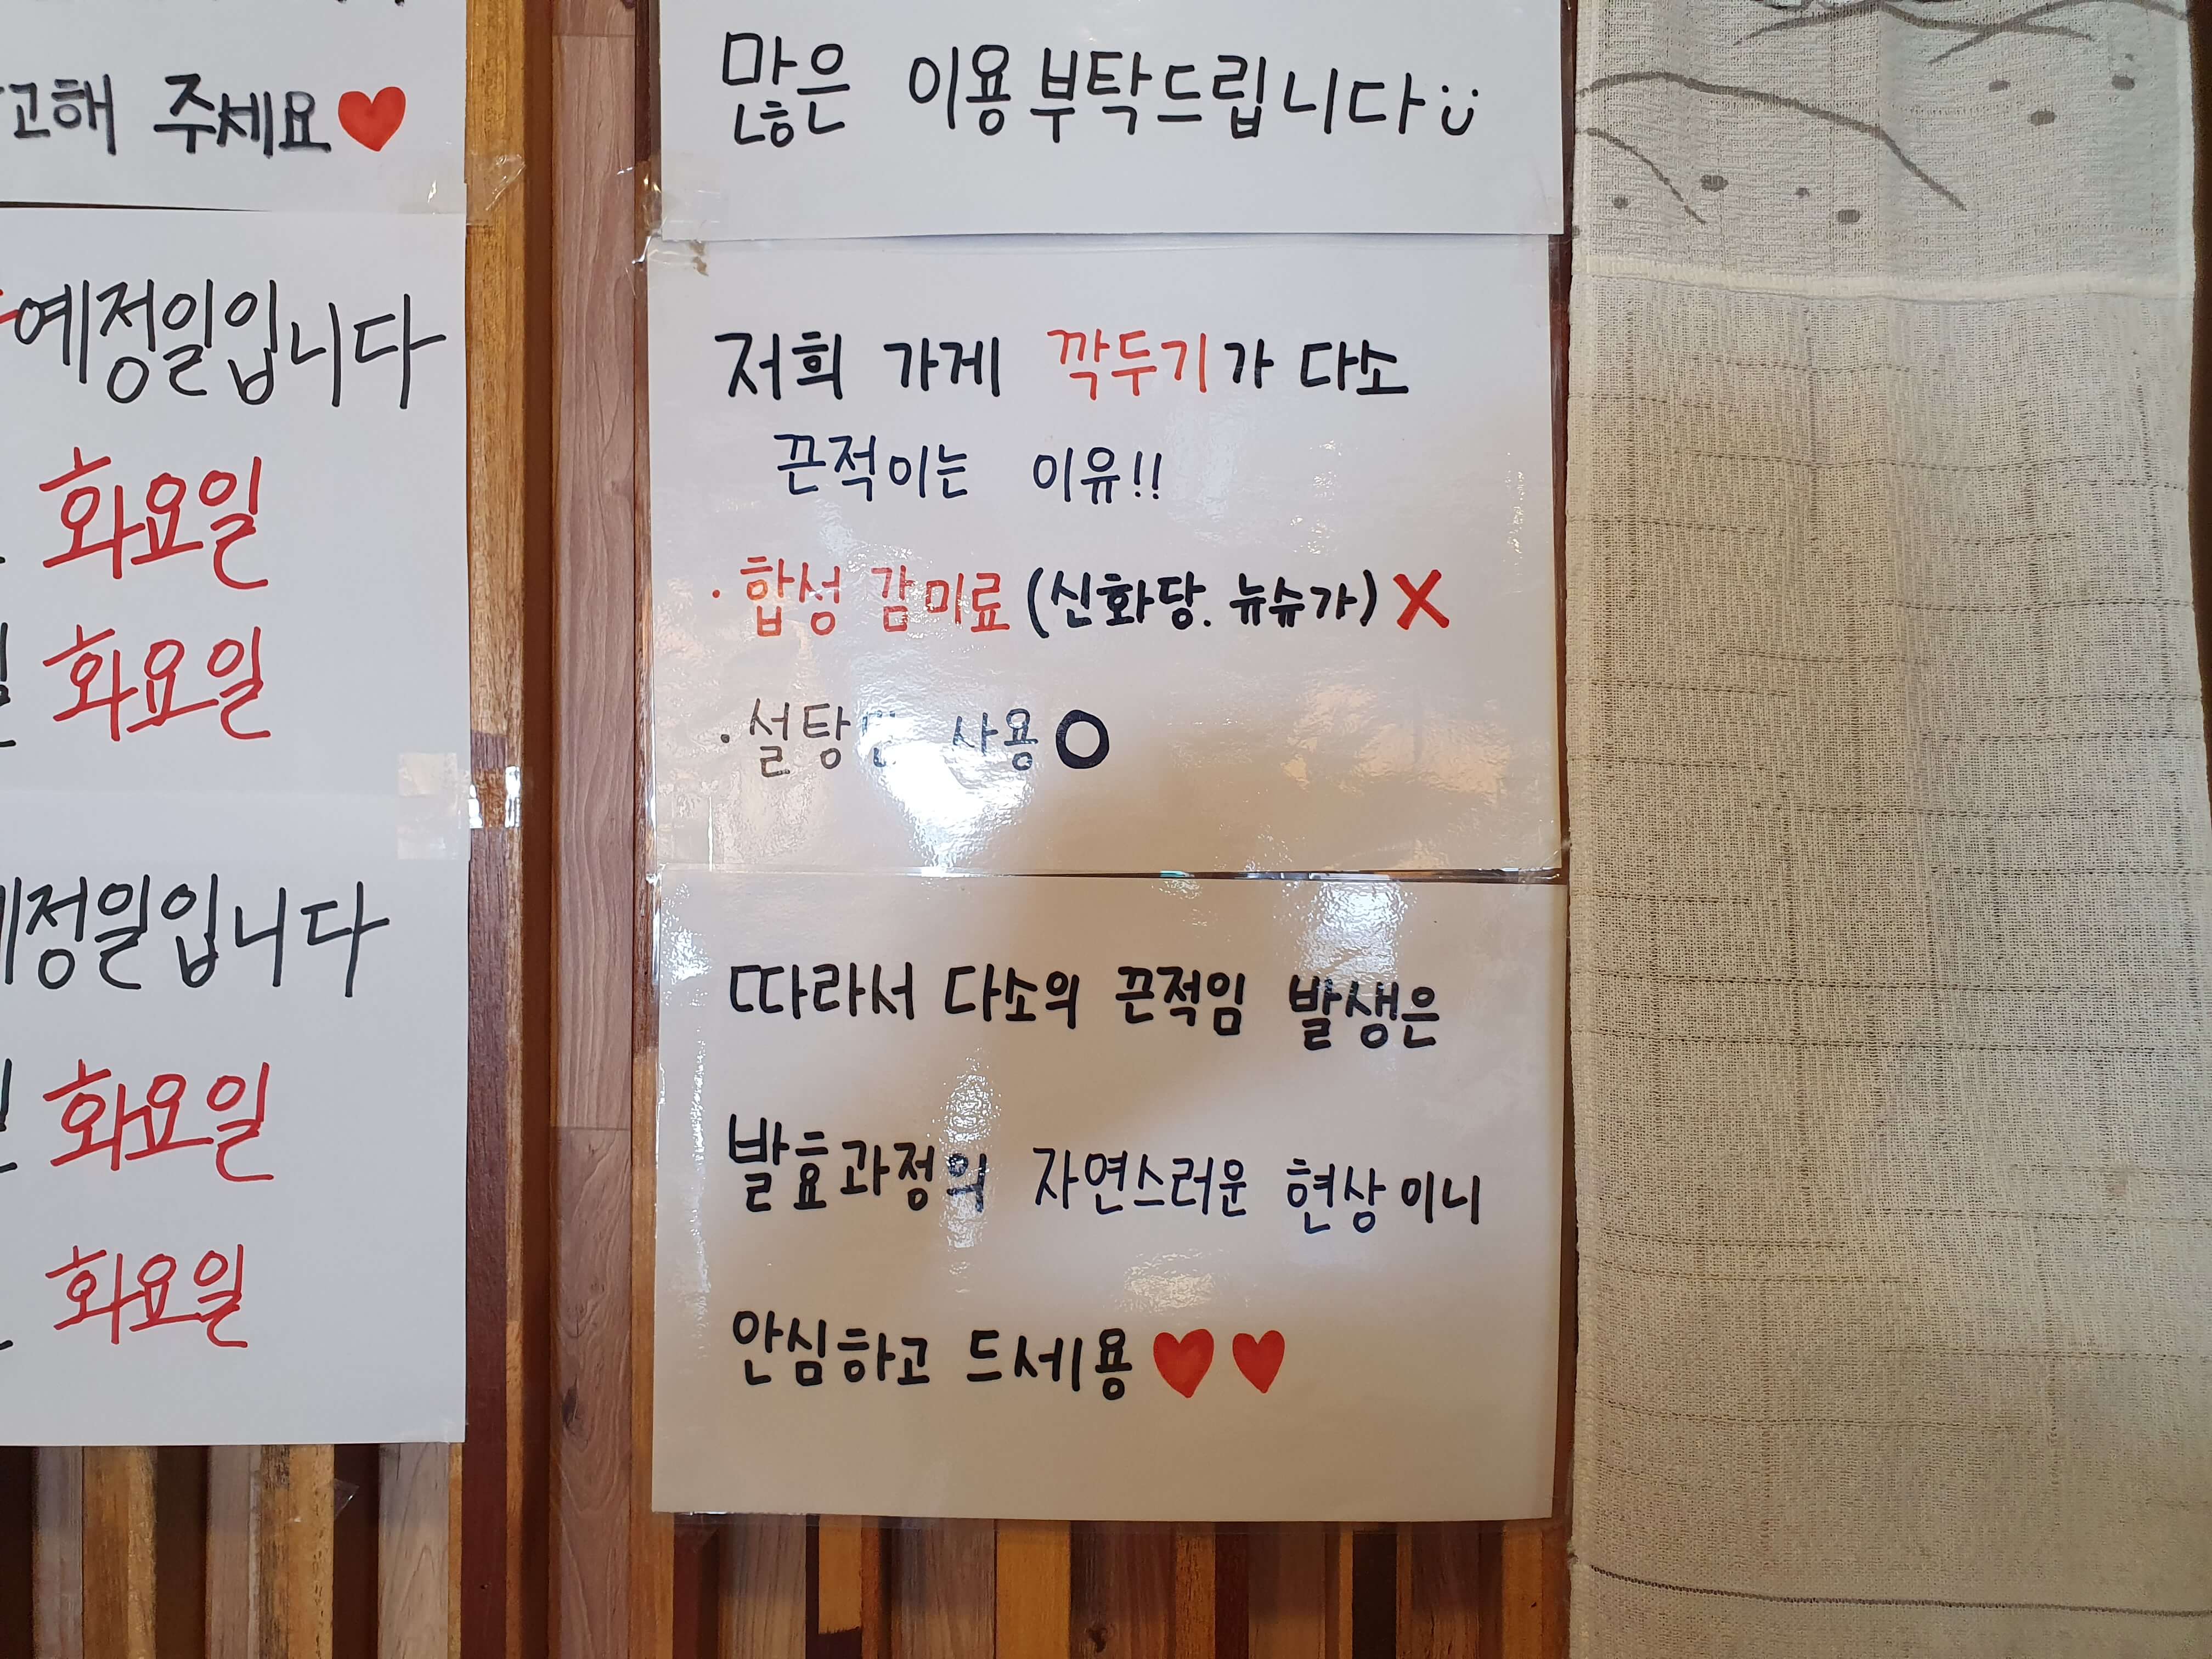 고해 주세요
예정일입니다
화요일
화요일
예정일입니다
화요일
화요일
많은 이용 부탁드립니다
저희 가게 깍두기가 다소
끈적이는 이유!!
· 합성 감미료 (신화당. 뉴슈가) X
· 설탕만 사용 O
따라서 다소의 끈적임 발생은
발효과정의 자연스러운 현상이니
안심하고 드세용